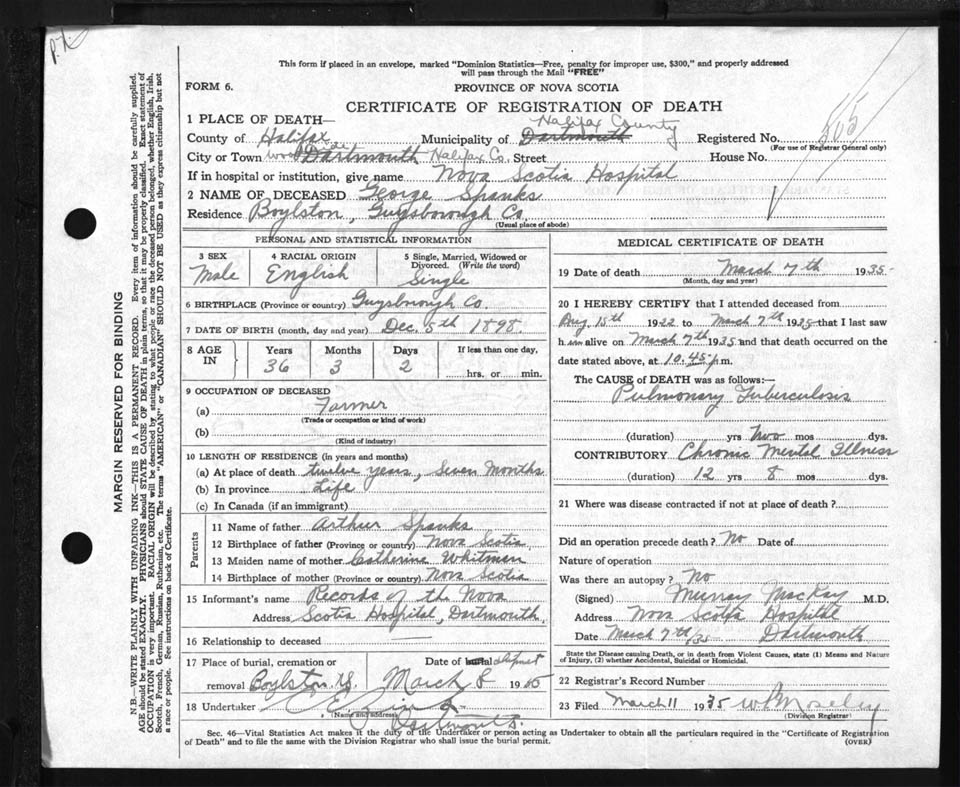 P.X.
This form if placed in an envelope, marked "Dominion Statistics—Free, penalty for improper use, $300," and properly addressed
will pass through the Mail "FREE"
FORM 6.
PROVINCE OF NOVA SCOTIA
CERTIFICATE OF REGISTRATION OF DEATH
MARGIN RESERVED FOR BINDING
N.B.—WRITE PLAINLY WITH UNFADING INK—THIS IS A PERMANENT RECORD. Every item of information should be carefully supplied.
AGE should be stated EXACTLY. PHYSICIANS should STATE CAUSE OF DEATH in plain terms, so that it may be properly classified. Exact statement of
OCCUPATION is very important. RACIAL ORIGIN will be described by stating to what people or race the deceased person belonged, whether English, Irish,
Scotch, French, German, Russian, Ruthenian, etc. The terms "AMERICAN" or "CANADIAN" SHOULD NOT BE USED as they express citizenship but not
a race or people. See instructions on back of Certificate.
1 PLACE OF DEATH—
Halifax County
County of Halifax Municipality of Dartmouth Registered No. 305
(For use of Registrar General only)
City or Town Dartmouth Halifax Co. Street House No.
If in hospital or institution, give name Nova Scotia Hospital
2 NAME OF DECEASED George Spanks
Residence Boylston, Guysborough Co
(Usual place of abode)
PERSONAL AND STATISTICAL INFORMATION
3 SEX 4 RACIAL ORIGIN 5 Single, Married, Widowed or
Divorced. (Write the word)
Male English Single
6 BIRTHPLACE (Province or country) Guysborough Co.
7 DATE OF BIRTH (month, day and year) Dec. 5th 1898.
8 AGE IN Years Months Days If less than one day,
36 3 2 hrs. or min.
9 OCCUPATION OF DECEASED
(a) Farmer
(Trade or occupation or kind of work)
(b)
(Kind of industry)
10 LENGTH OF RESIDENCE (in years and months)
(a) At place of death twelve years, Seven Months
(b) In province Life
(c) In Canada (if an immigrant)
Parents
11 Name of father Arthur Spanks
12 Birthplace of father (Province or country) Nova Scotia
13 Maiden name of mother Catherine Whitman
14 Birthplace of mother (Province or country) Nova Scotia
15 Informant's name Records of the Nova
Address Scotia Hospital, Dartmouth
16 Relationship to deceased —
17 Place of burial, cremation or Date of burial
removal Boylston N.S. March 8 1935
18 Undertaker
(Name and address)
Dartmouth.
MEDICAL CERTIFICATE OF DEATH
19 Date of death March 7th 1935
(Month, day and year)
20 I HEREBY CERTIFY that I attended deceased from
Aug. 15th 1922 to March 7th 1935 that I last saw
h im alive on March 7th 1935 and that death occurred on the
date stated above, at 10.45 p.m.
The CAUSE of DEATH was as follows:—
Pulmonary Tuberculosis
(duration) yrs Two mos dys.
CONTRIBUTORY Chronic Mental Illness
(duration) 12 yrs 8 mos dys.
21 Where was disease contracted if not at place of death?
Did an operation precede death? No Date of
Nature of operation
Was there an autopsy? No
(Signed) Murray MacKay M.D.
Address Nova Scotia Hospital
Date March 7th/35 Dartmouth
State the Disease causing Death, or in death from Violent Causes, state (1) Means and Nature
of Injury, (2) whether Accidental, Suicidal or Homicidal.
22 Registrar's Record Number
23 Filed March 11 1935 Moseley
(Division Registrar)
Sec. 46—Vital Statistics Act makes it the duty of the Undertaker or person acting as Undertaker to obtain all the particulars required in the "Certificate of Registration
of Death" and to file the same with the Division Registrar who shall issue the burial permit.
(OVER)